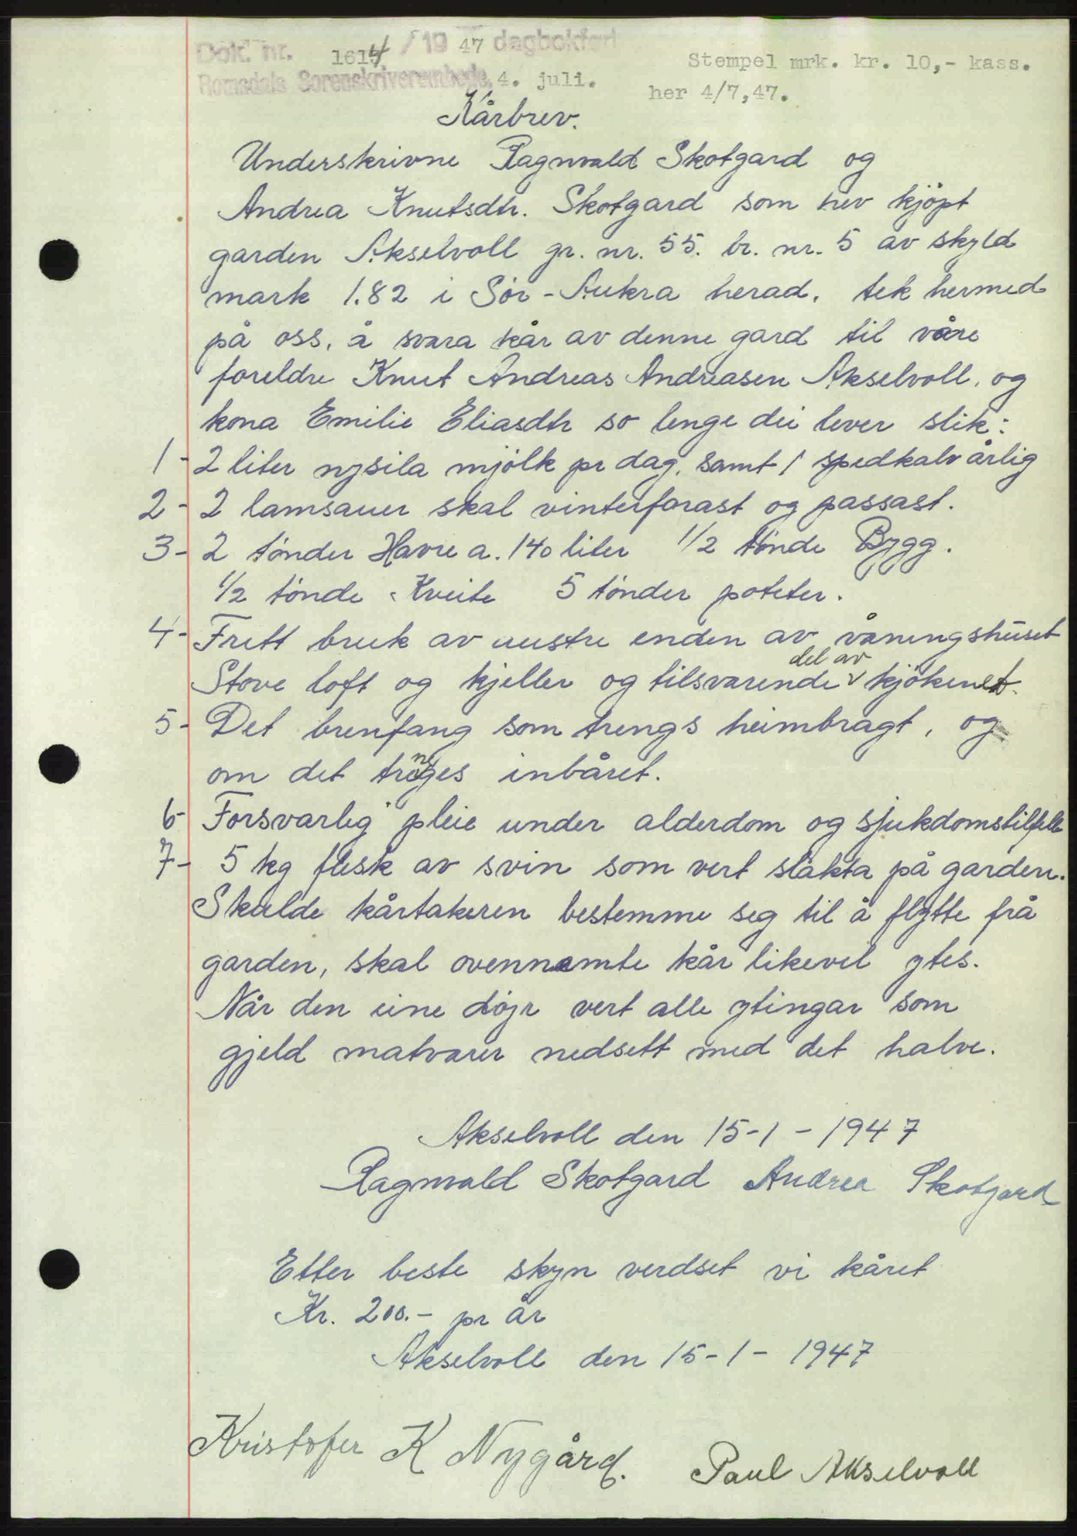 Dok. nr. 1614 / 19 47 dagbokført
Stempel mrk. kr. 10,- kass.
Romsdals Sorenskriverembede, 4. juli.
her 4/7,47.
Kårbrev.
Underskrivne Ragnvald Skotgard og
Andrea Knutsdtr. Skotgard som hev kjöpt
garden Akselvoll gr. nr. 55. br. nr. 5 av skyld
mark 1.82 i Sör-Aukra herad, tek hermed
på oss, å svara kår av denne gard til våre
foreldre Knut Andreas Andreasen Akselvoll, og
kona Emilie Eliasdtr so lenge dei lever slik:
1 - 2 liter nysila mjölk pr dag, samt 1 spedkalv årlig
2 - 2 lamsauer skal vinterforast og passast.
3 - 2 tönder Havre a. 140 liter 1/2 tönde Bygg.
1/2 tönde Kveite 5 tönder poteter.
4 - Fritt bruk av austre enden av våningshuset
Stove loft og kjeller og tilsvarende del av kjökenet.
5 - Det brenfang som trengs heimbragt, og
om det trenges inbåret.
6 - Forsvarleg pleie under alderdom og sjukdomstilfelle
7 - 5 kg flesk av svin som vert slakta på garden.
Skulde kårtakeren bestemme seg til å flytte frå
garden, skal ovennemte kår likevel ytes.
Når den eine döyr vert alle ytingar som
gjeld matvarer nedsett med det halve.
Akselvoll den 15-1-1947
Ragnvald Skotgard Andrea Skotgard
Etter beste skyn verdset vi kåret
Kr. 200.- pr år
Akselvoll den 15-1-1947
Kristofer K Nygård. Paul Akselvoll